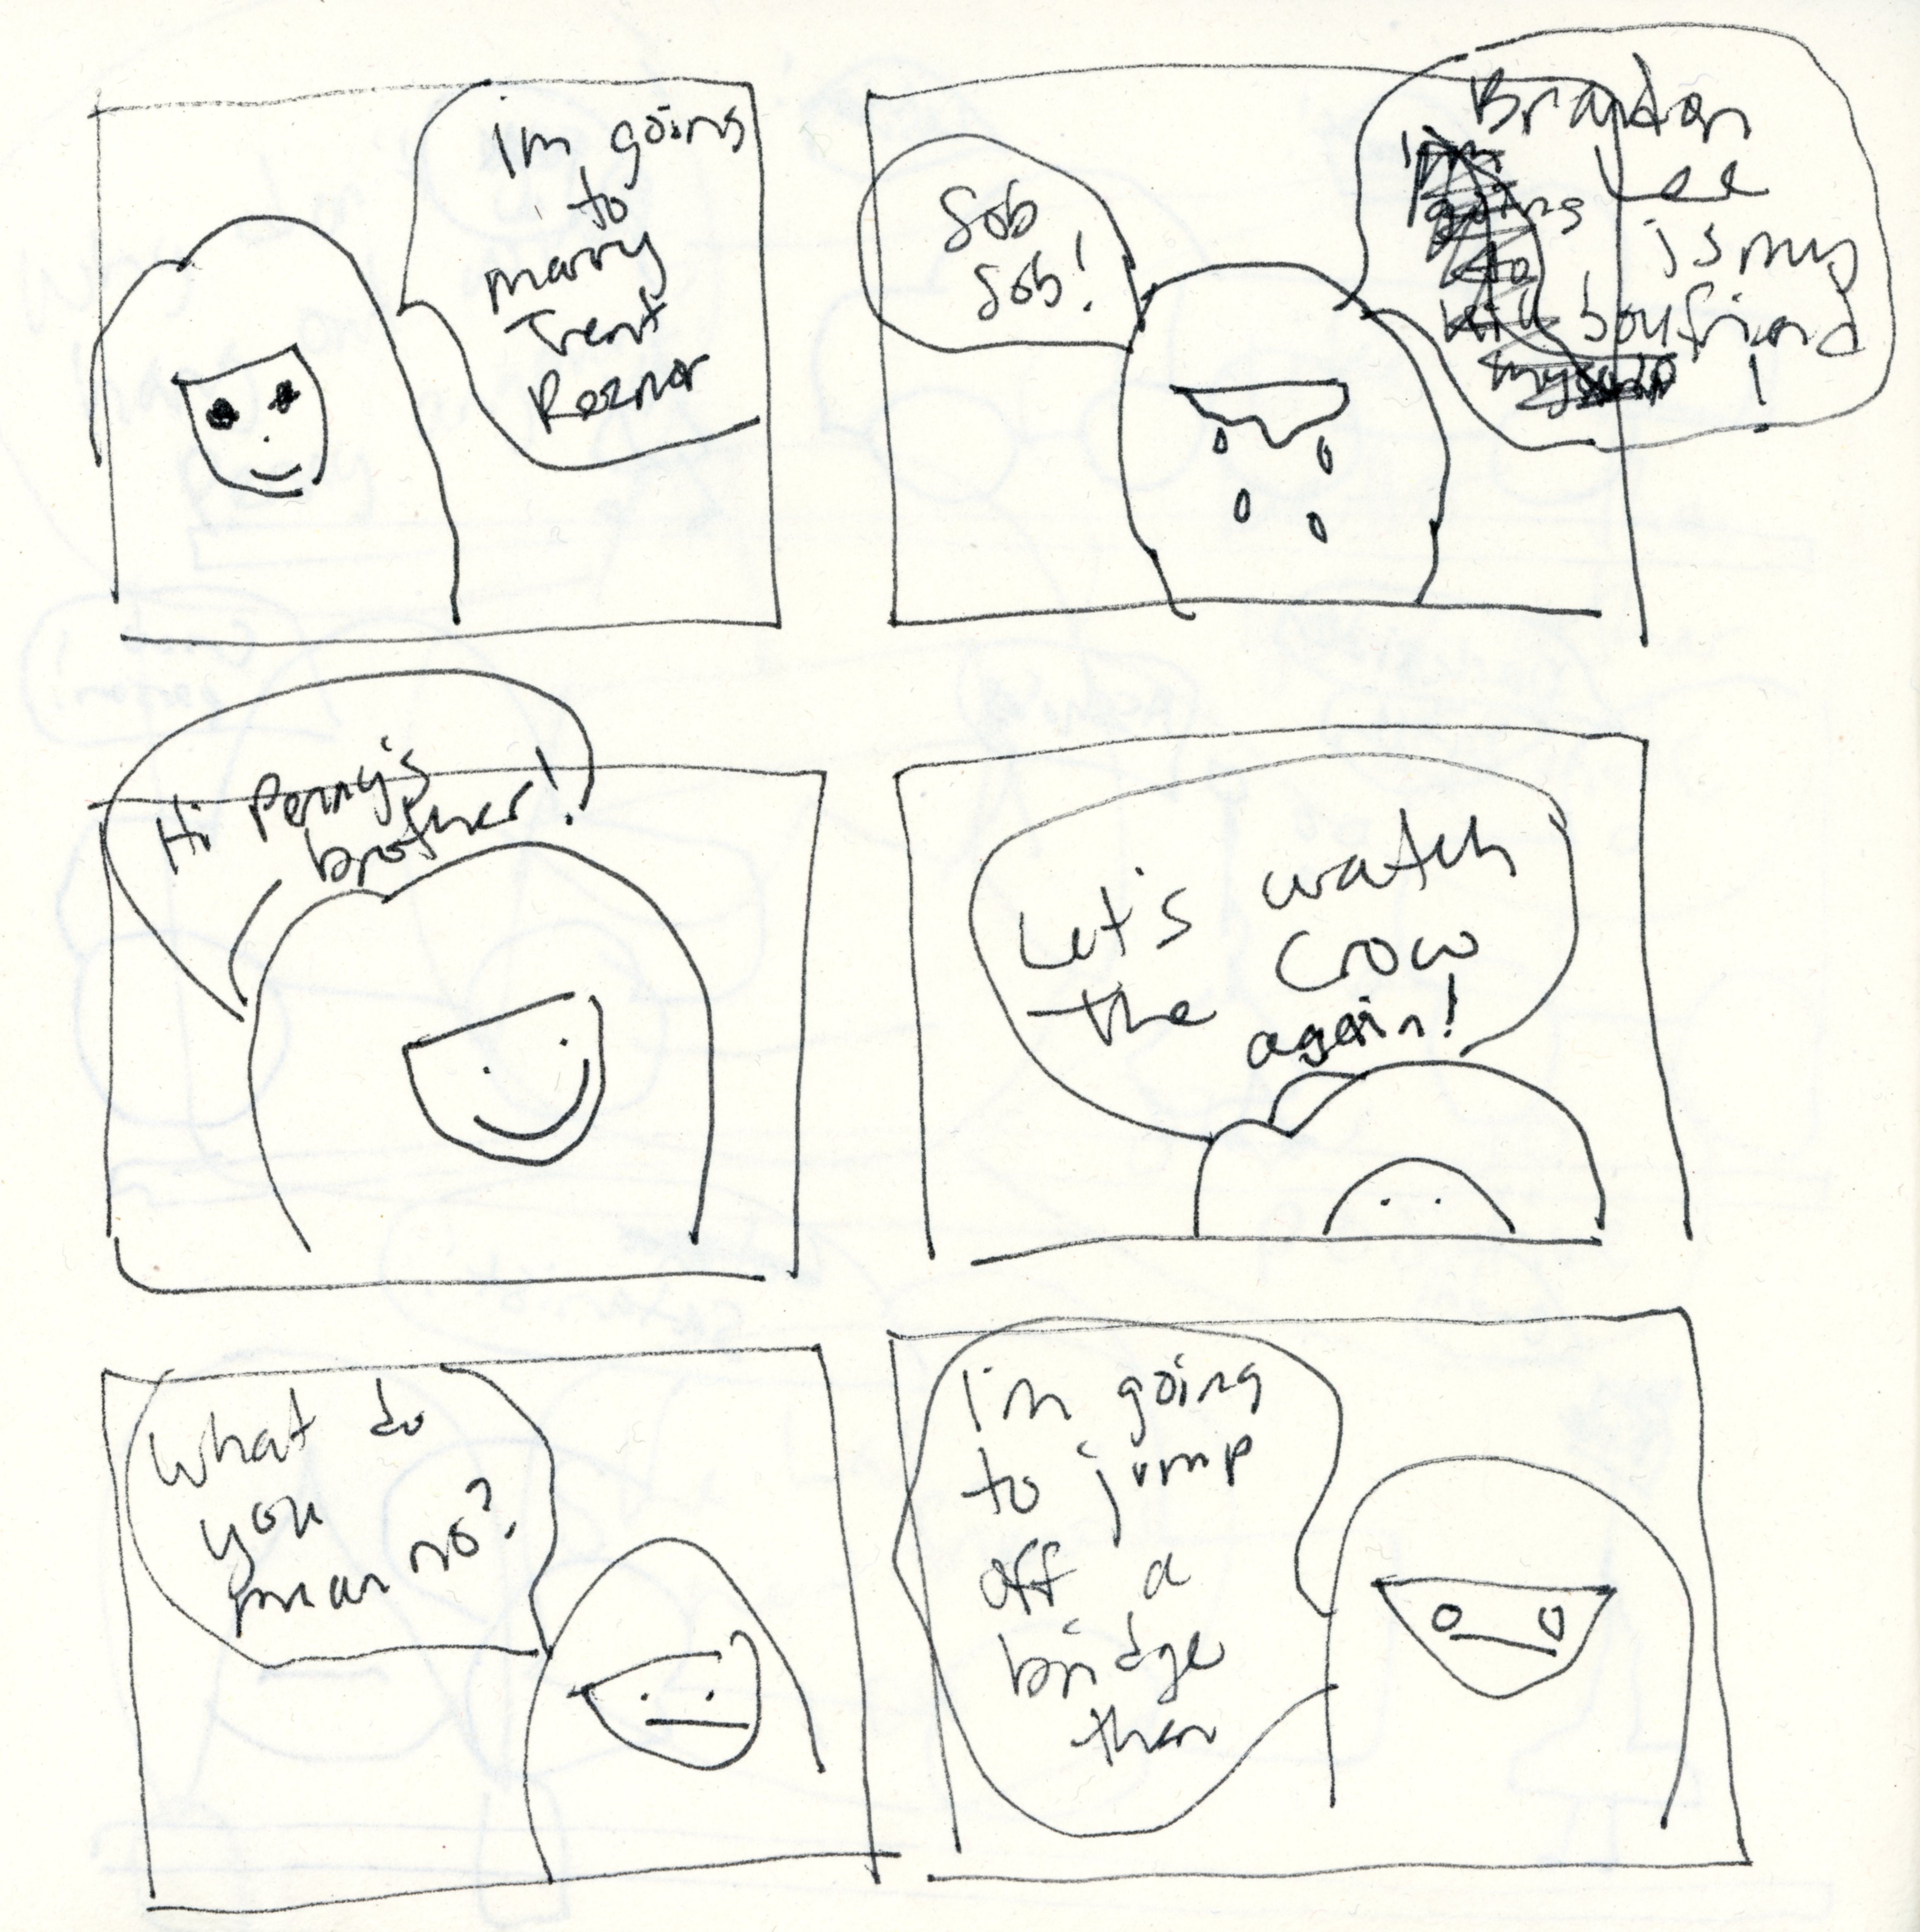 I'm going
to
marry
Trent
Reznor
Sob
Sob!
Brandon
Lee
is my
boyfriend
!
I'm
going
to
kill
myself
Hi Penny's
brother!
Let's watch
the Crow
again!
What do
you
mean no?
I'm going
to jump
off a
bridge
then